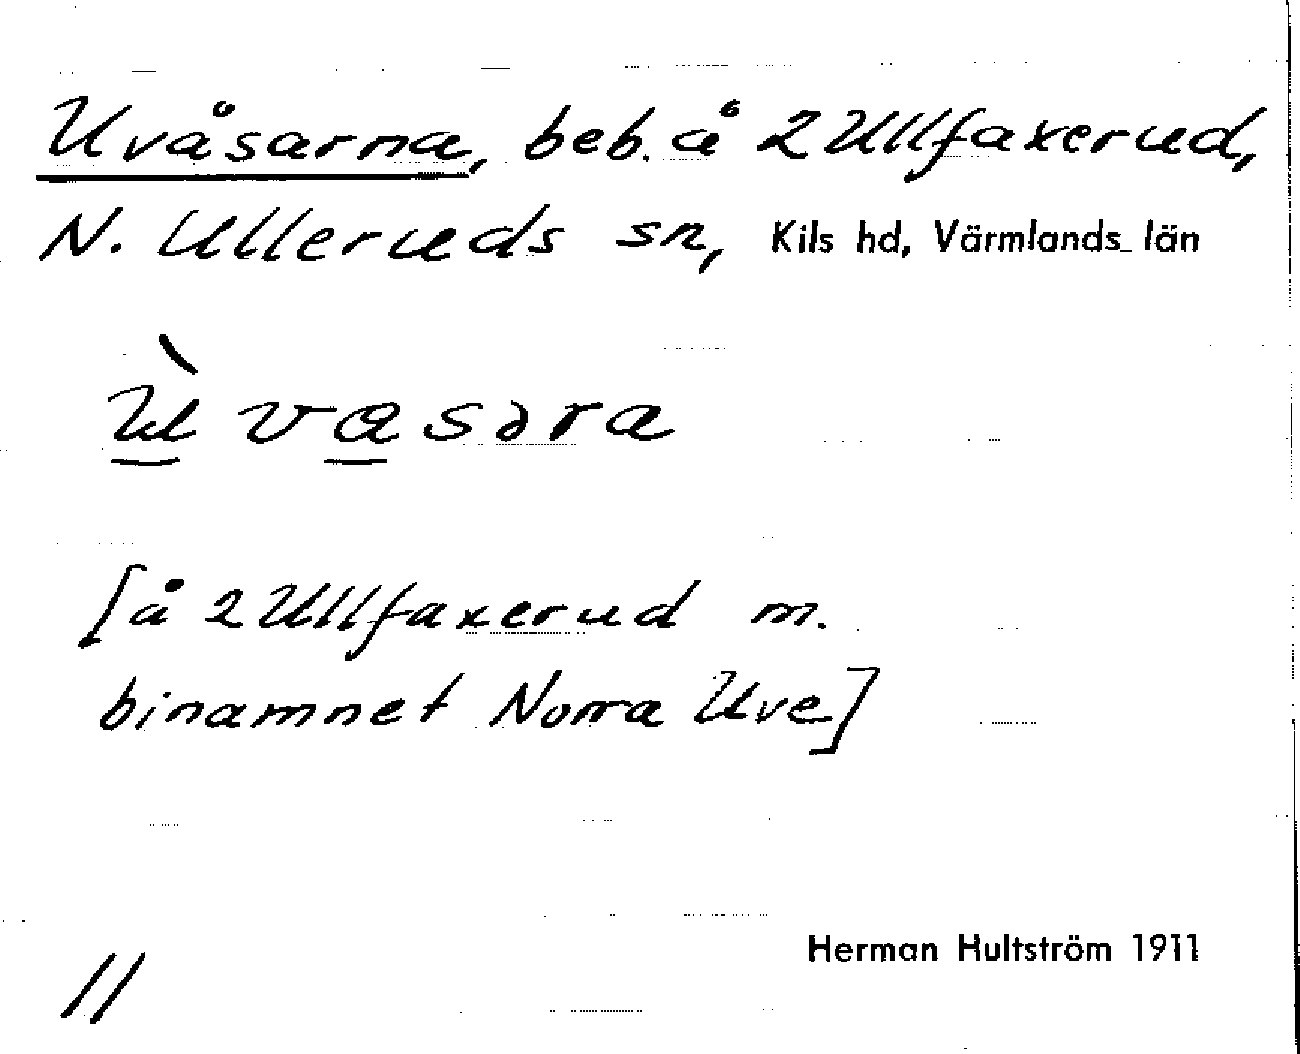 Uvåsarna, beb. å 2 Ullfaxerud,
N. Ulleruds sn, Kils hd, Värmlands län
ù vasəra
[å 2 Ullfaxerud m.
binamnet Norra Uve]
Herman Hultström 1911
11